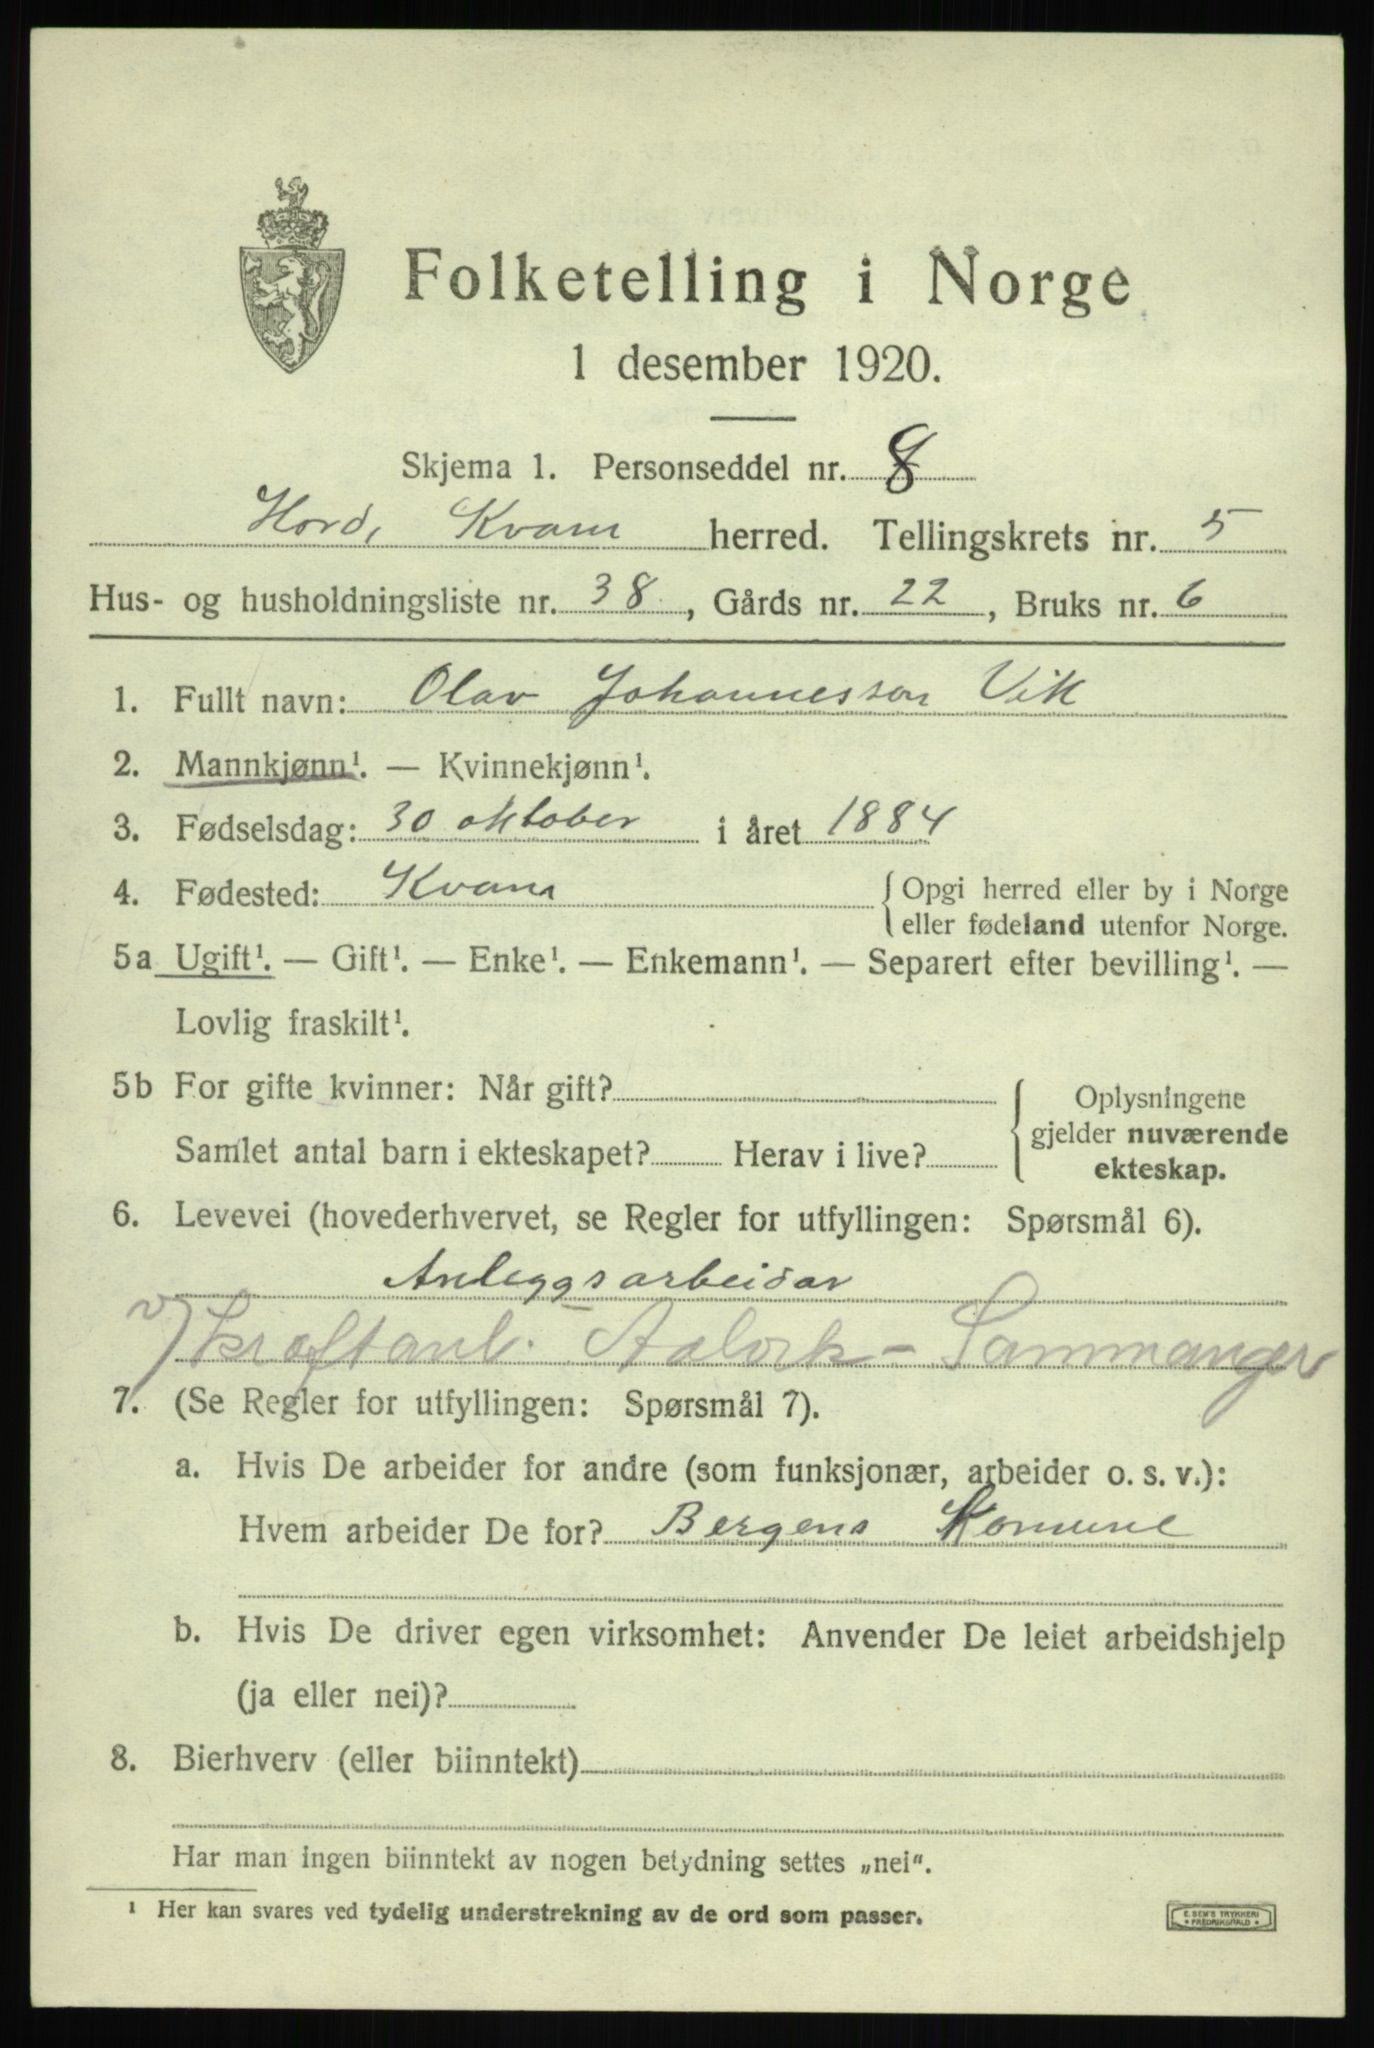 Folketelling i Norge
1 desember 1920.
Skjema 1. Personseddel nr. 8
Hord. Kvam herred. Tellingskrets nr. 5
Hus- og husholdningsliste nr. 38, Gårds nr. 22, Bruks nr. 6
1. Fullt navn: Olav Johannesson Vik
2. Mannkjønn¹. — Kvinnekjønn¹.
3. Fødselsdag: 30 oktober i året 1884
4. Fødested: Kvam { Opgi herred eller by i Norge
eller fødeland utenfor Norge.
5a Ugift¹. — Gift¹. — Enke¹. — Enkemann¹. — Separert efter bevilling¹. —
Lovlig fraskilt¹.
5b For gifte kvinner: Når gift?
Samlet antal barn i ekteskapet? Herav i live?
{ Oplysningene
gjelder nuværende
ekteskap.
6. Levevei (hovederhvervet, se Regler for utfyllingen: Spørsmål 6).
Anleggsarbeidar
v/ kraftanl. - Sammanger
7. (Se Regler for utfyllingen: Spørsmål 7).
a. Hvis De arbeider for andre (som funksjonær, arbeider o. s. v.):
Hvem arbeider De for? Bergens Komune
b. Hvis De driver egen virksomhet: Anvender De leiet arbeidshjelp
(ja eller nei)?
8. Bierhverv (eller biinntekt)
Har man ingen biinntekt av nogen betydning settes „nei".
¹ Her kan svares ved tydelig understrekning av de ord som passer.
E. SEM'S TRYKKERI
FREDRIKSHALD